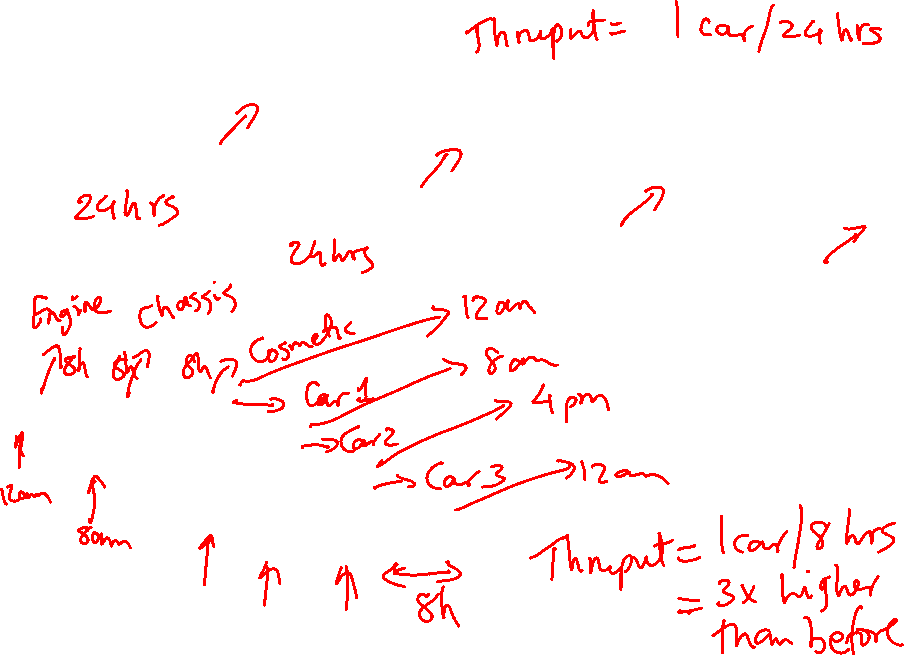 Thruput = 1 car/24 hrs
24hrs
24hrs
Engine chassis
Cosmetic
12am
8h 8h 8h
8am
Car 1
4pm
Car 2
Car 3
12am
12am
8am
Thruput = 1 car/8 hrs
= 3x higher
than before
8h